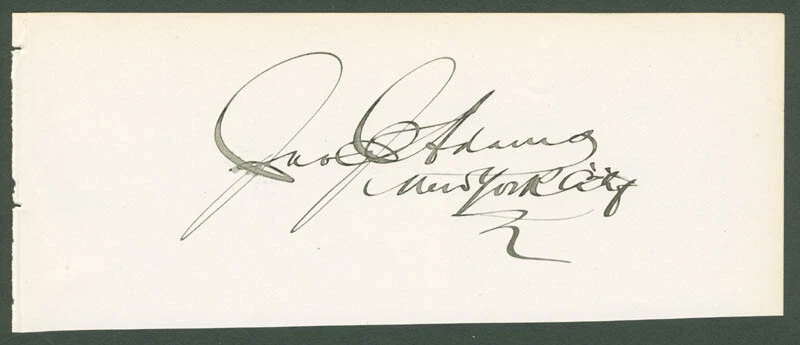 Jno J Adams
New York City